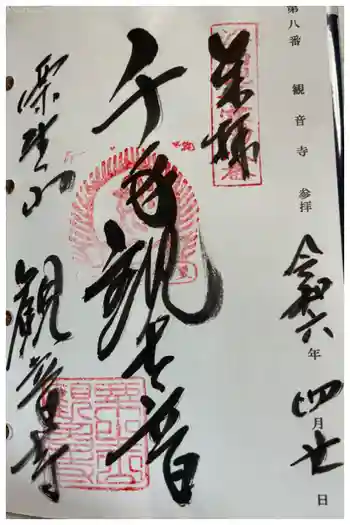 第八番 観音寺 参拝
奉拝
令和六年四月廿日
千手観世音
観音寺